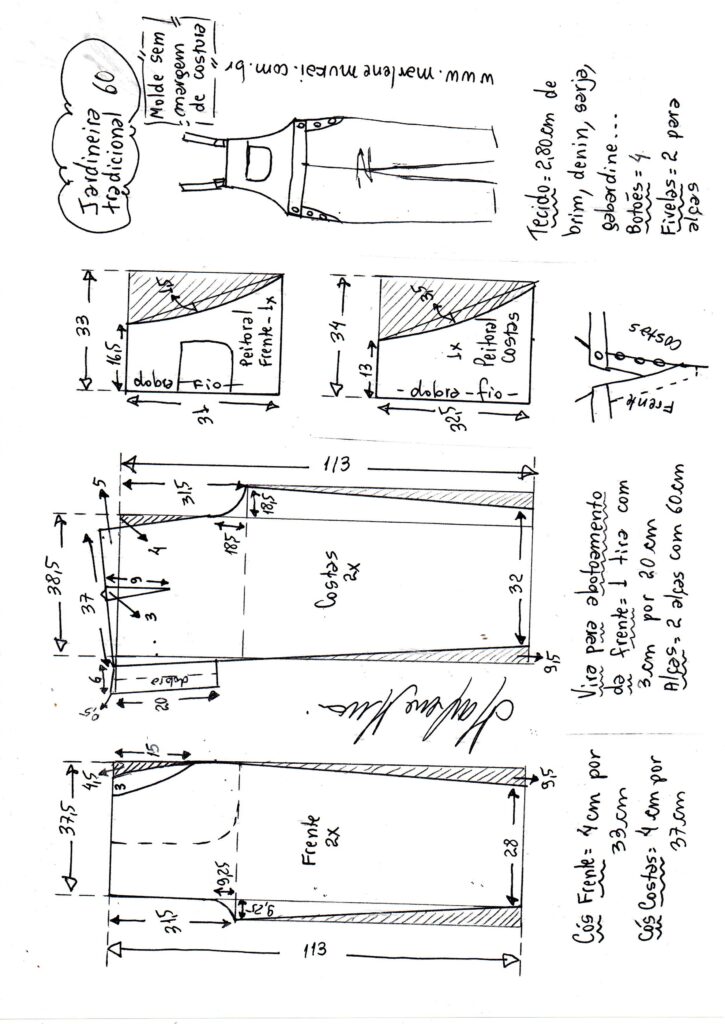 Jardineira 60
tradicional
Molde sem
margem
de costura
www.marlenemukai.com.br
37,5
4,5
15
3
Frente
2x
9,25
9,25
31,5
28
9,5
113
38,5
37
5
6
0,5
20
dobra
9
3
4
31,5
18,5
18,5
Costas
2x
32
9,5
113
33
16,5
1,5
31
dobra
fio
Peitoral
Frente-1x
34
13
3,5
32,5
dobra-fio
1x
Peitoral
Costas
Tecido=2,80cm de
brim, denin, sarja,
gabardine...
Botões=4
Fivelas=2 para
alças
Frente
Costas
Vira para abotoamento
da frente=1 tira com
3cm por 20cm
Alças=2 alças com 60cm
Cós Frente=4cm por
33cm
Cós Costas=4cm por
37cm